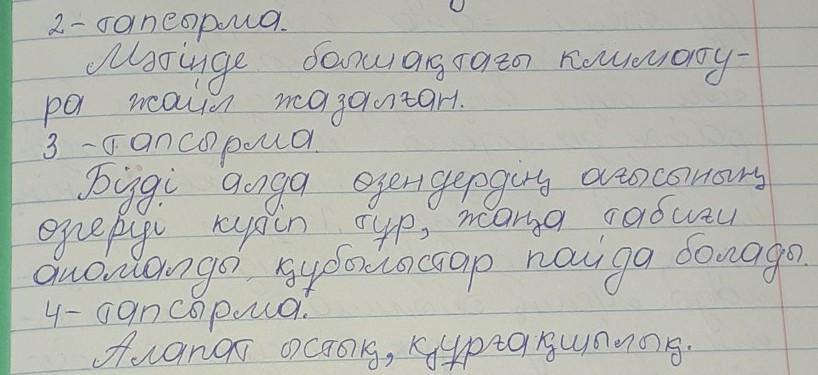 2-тапсырма.
Мәтінде болашақтағы климату-
ра жайл жазалған.
3-тапсырма
Бізді алда өзендердің ағысының
өзгеруі күтіп тұр, жаңа табиғи
аномалды құбылыстар пайда болады.
4-тапсырма.
Алапат ыстық, құрғақшылық.